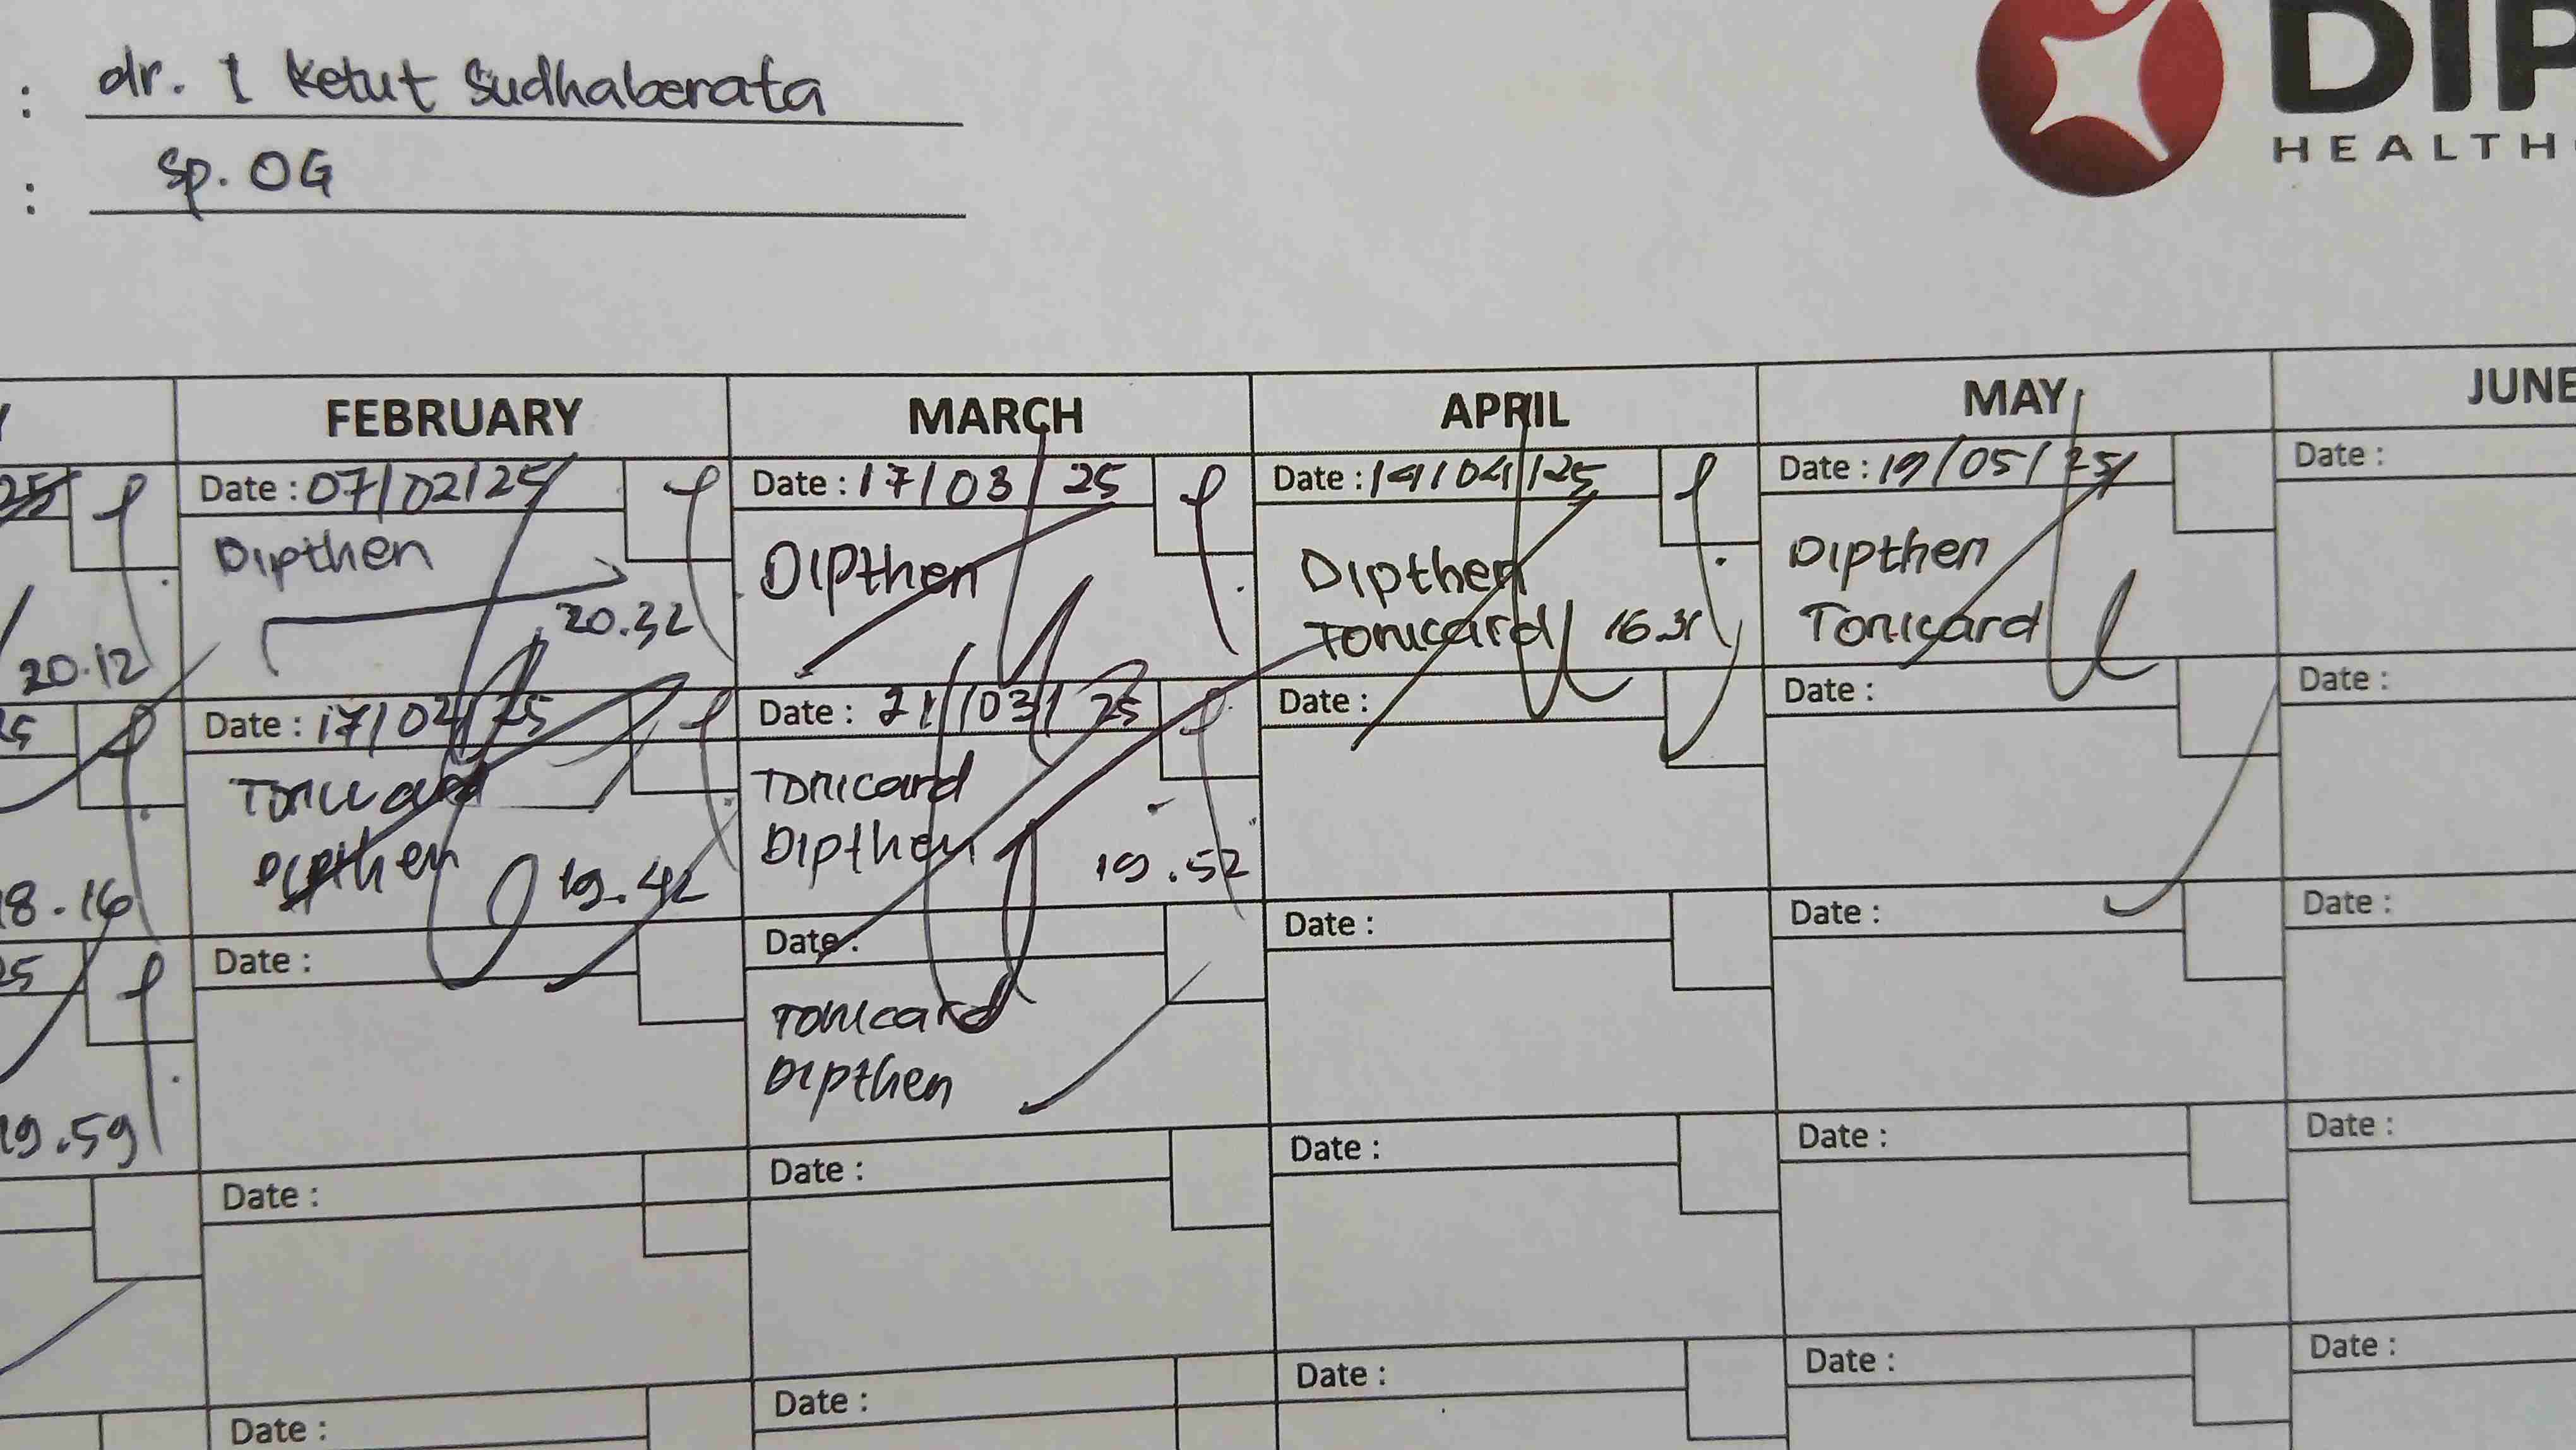 : dr. I Ketut Sudhaberata
: Sp. OG
DIP
HEALTH
FEBRUARY
MARCH
APRIL
MAY
JUNE
25
Date : 07/02/25
Date : 17/03/25
Date : 14/04/25
Date : 19/05/25
Date :
Dipthen
Dipthen
Dipthen
Dipthen
20.12
20.32
Tonicard 16.31
Tonicard
25
Date : 17/02/25
Date : 21/03/25
Date :
Date :
Date :
Tonicard
Tonicard
Dipthen
Dipthen
8.16
19.42
19.52
25
Date :
Date :
Date :
Date :
Date :
Tonicard
Dipthen
19.59
Date :
Date :
Date :
Date :
Date :
Date :
Date :
Date :
Date :
Date :